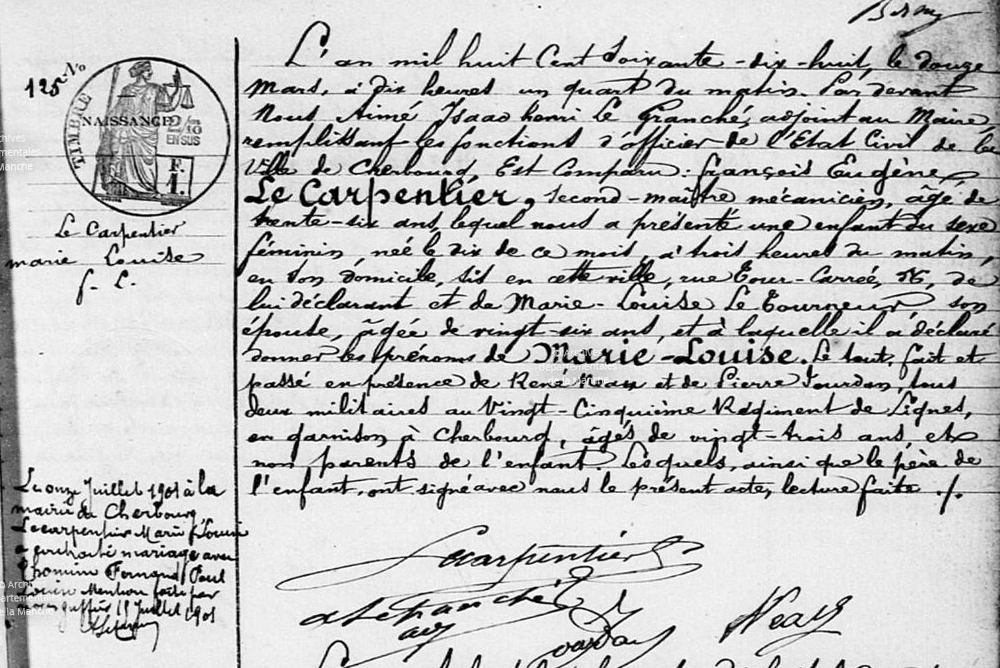 125
TIMBRE
NAISSANCE
2/10
EN SUS
F.
1.
Le Carpentier
marie Louise
f. L.
L'an mil huit Cent Soixante-dix-huit, le douze
Mars, à dix heures un quart du matin. Par devant
Nous Aimé Isaac henri Le Granché, adjoint au Maire
remplissant les fonctions d'officier de l'Etat Civil de la
Ville de Cherbourg, Est Comparu : françois Eugène
Le Carpentier, second-maître mécanicien, âgé de
trente-six ans, lequel nous a présenté une enfant du sexe
féminin, née le dix de ce mois, à trois heures du matin,
en son domicile, sis en cette ville, rue Tour-Carrée, 26, de
lui déclarant et de Marie-Louise Le Tourneur, son
épouse, âgée de vingt-six ans, et à laquelle il a déclaré
donner les prénoms de Marie-Louise. Le tout fait et
passé en présence de René Neau et de Pierre Jourdan, tous
deux militaires au Vingt-Cinquième Régiment de Lignes,
en garnison à Cherbourg, âgés de vingt-trois ans, et
non parents de l'enfant. Lesquels, ainsi que le père de
l'enfant, ont signé avec nous le présent acte, lecture faite ./.
Le onze Juillet 1901 à la
mairie de Cherbourg
Lecarpentier Marie Louise
a contracté mariage avec
Thomine Fernand Paul
Louin Mention faite par
greffier 11 Juillet 1901
Lecarpentier
Jourdan
Neau
Archives
départementales
de la Manche